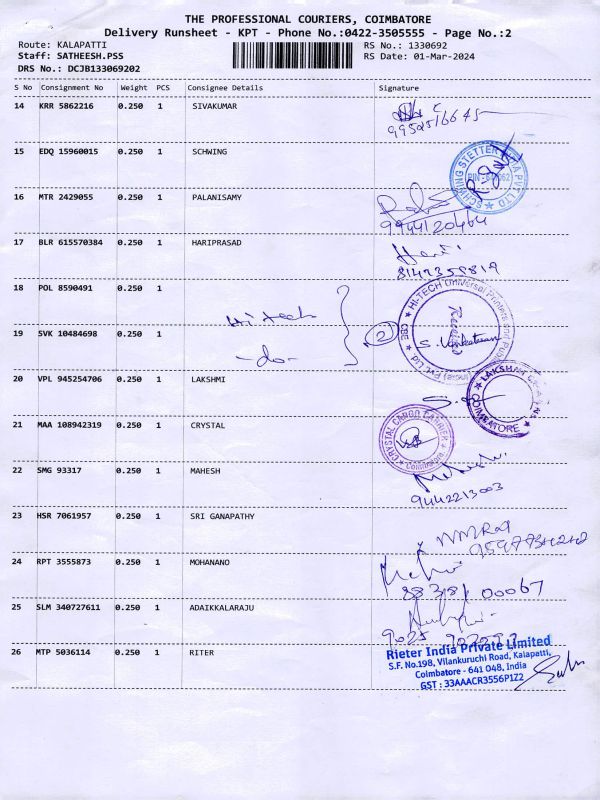 THE PROFESSIONAL COURIERS, COIMBATORE
Delivery Runsheet - KPT - Phone No.:0422-3505555 - Page No.:2
Route: KALAPATTI
RS No.: 1330692
Staff: SATHEESH.PSS
RS Date: 01-Mar-2024
DRS No.: DCJB133069202
S No Consignment No Weight PCS Consignee Details Signature
14 KRR 5862216 0.250 1 SIVAKUMAR
15 EDQ 15960015 0.250 1 SCHWING
SCHWING STETTER INDIA PVT LTD
16 MTR 2429055 0.250 1 PALANISAMY
9944120464
17 BLR 615570384 0.250 1 HARIPRASAD
Hari
8149355819
18 POL 8590491 0.250 1
Hi tech
HI-TECH Universal Printers
Received
19 SVK 10484698 0.250 1
-do-
2
S. Venkatesan
CBE
(India) Pvt Ltd.
20 VPL 945254706 0.250 1 LAKSHMI
COIMBATORE
21 MAA 108942319 0.250 1 CRYSTAL
CRYSTAL CARGO CARRIER
Coimbatore
22 SMG 93317 0.250 1 MAHESH
9442213003
23 HSR 7061957 0.250 1 SRI GANAPATHY
24 RPT 3555873 0.250 1 MOHANANO
88381 00067
25 SLM 340727611 0.250 1 ADAIKKALARAJU
9025
26 MTP 5036114 0.250 1 RITER
Rieter India Private Limited
S.F. No.198, Vilankuruchi Road, Kalapatti,
Coimbatore - 641 048, India
GST : 33AAACR3556P1Z2